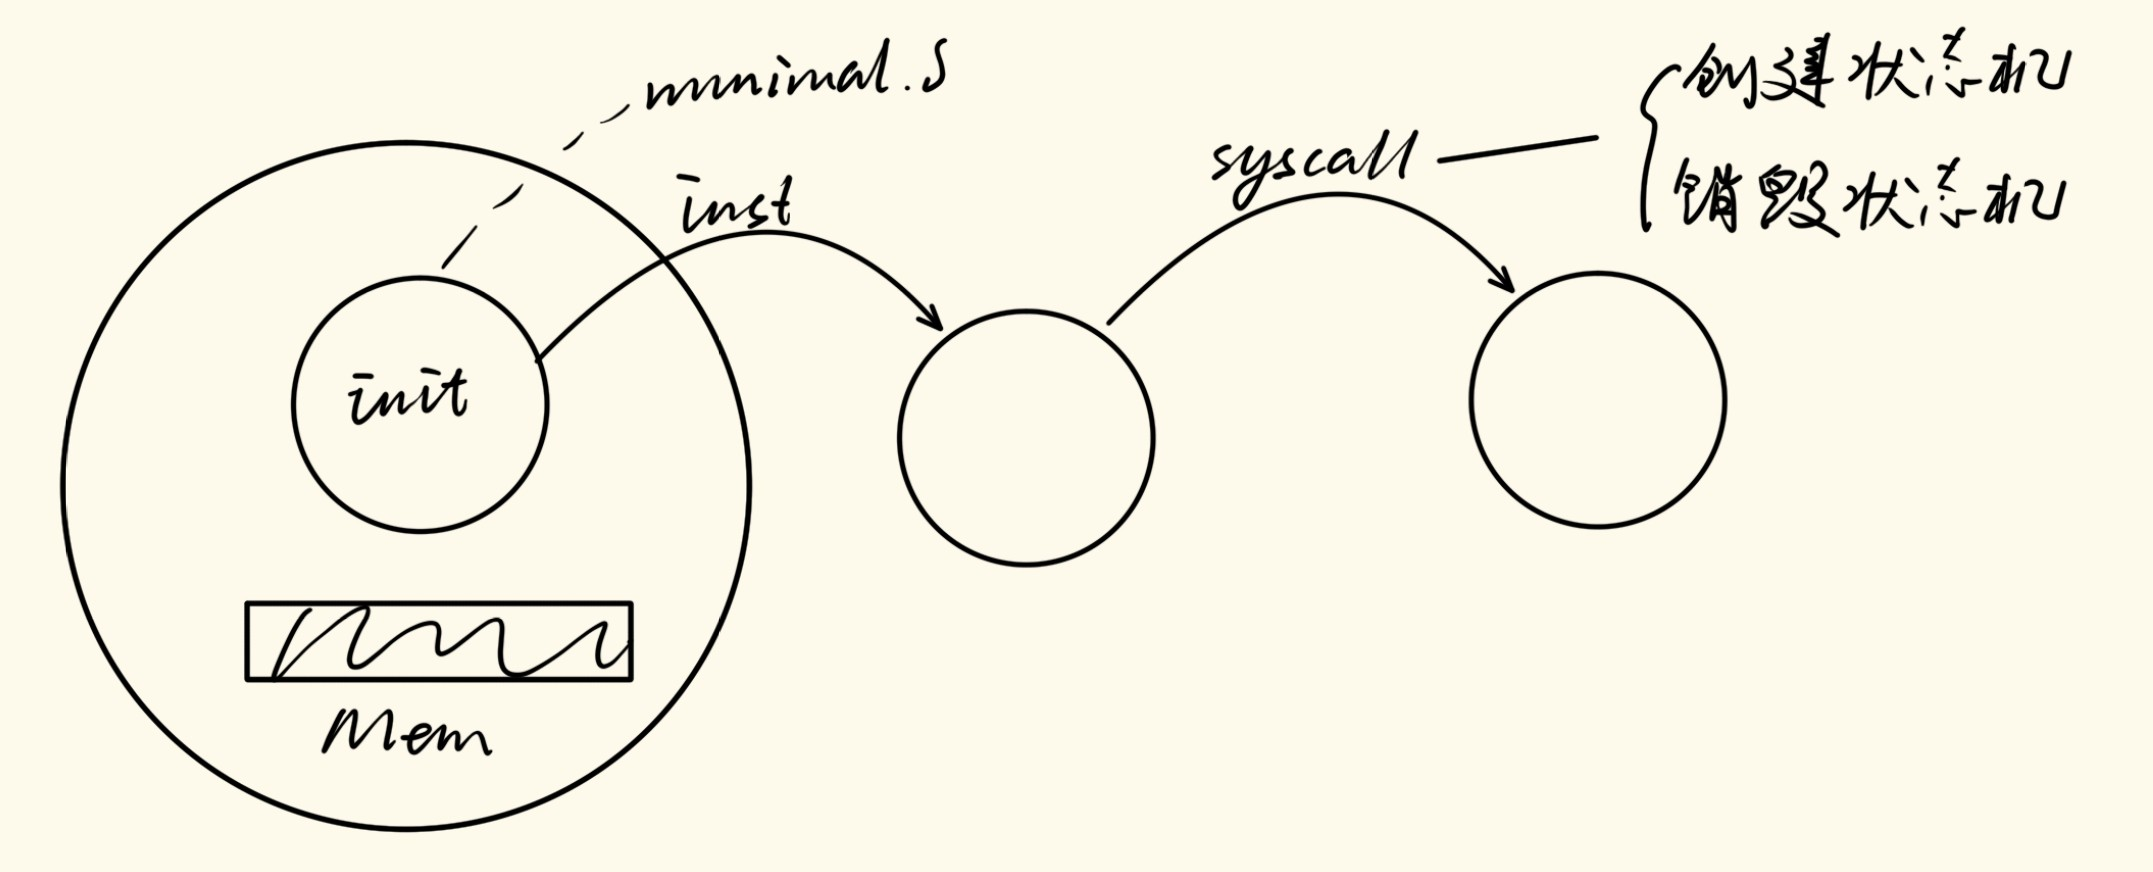 minimal.S
inst
syscall
创建状态机
销毁状态机
init
Mem